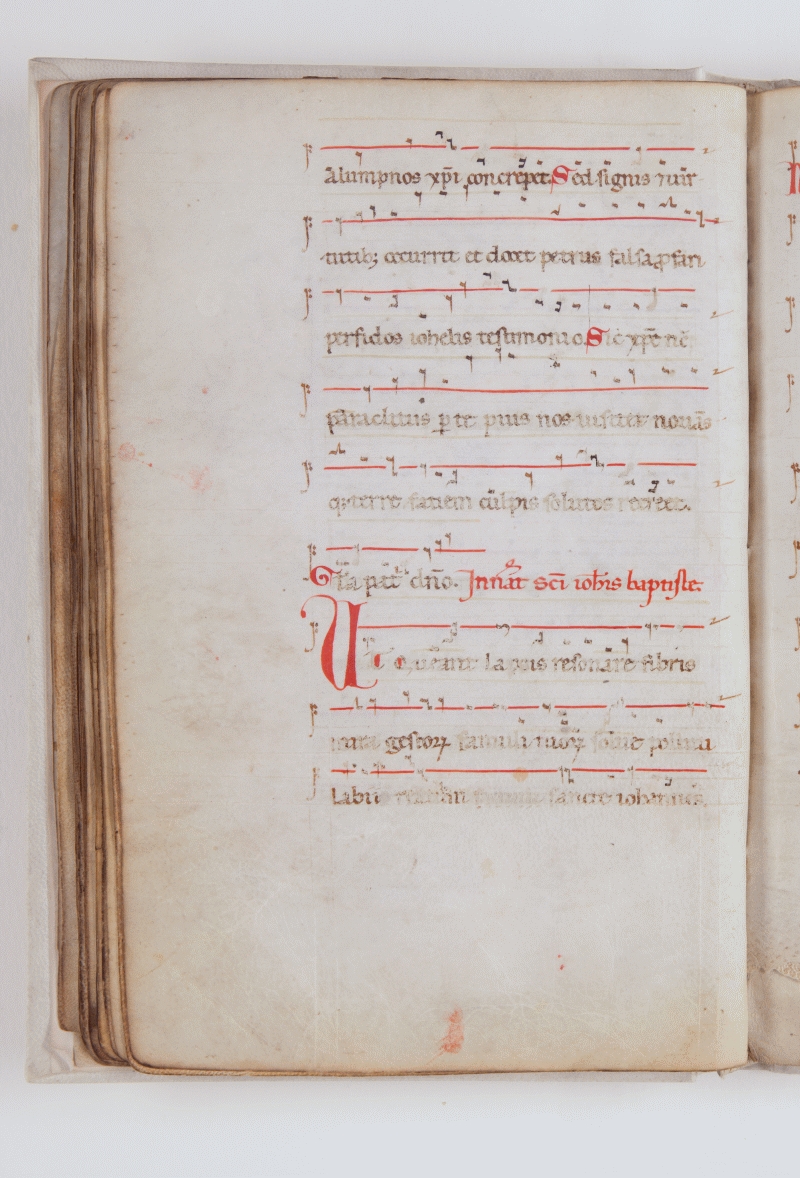 Alumpnos xp̄i concrep̄et. Sed signis ⁊ uir
tutibꝫ occurrit et docet petrus falsa ꝓfari
perfidos iohelis testimonio. Sic xp̄e nc̄
paraclitus ꝑ te pius nos uisitet nouās
qꝫ terre faciem culpis solutos recreet.
Gl̄a pat̄ dn̄o. In nat̄ sc̄i ioh̄is baptiste.
UT queant laxis resonare fibris
mira gestoꝝ famuli tuoꝝ solue polluti
Labii reatum sancte iohannes.